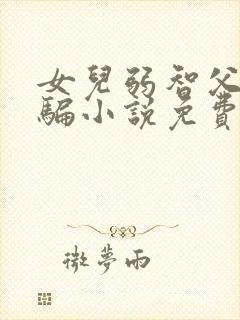 女兒弱智父
騙小說免費
微夢雨